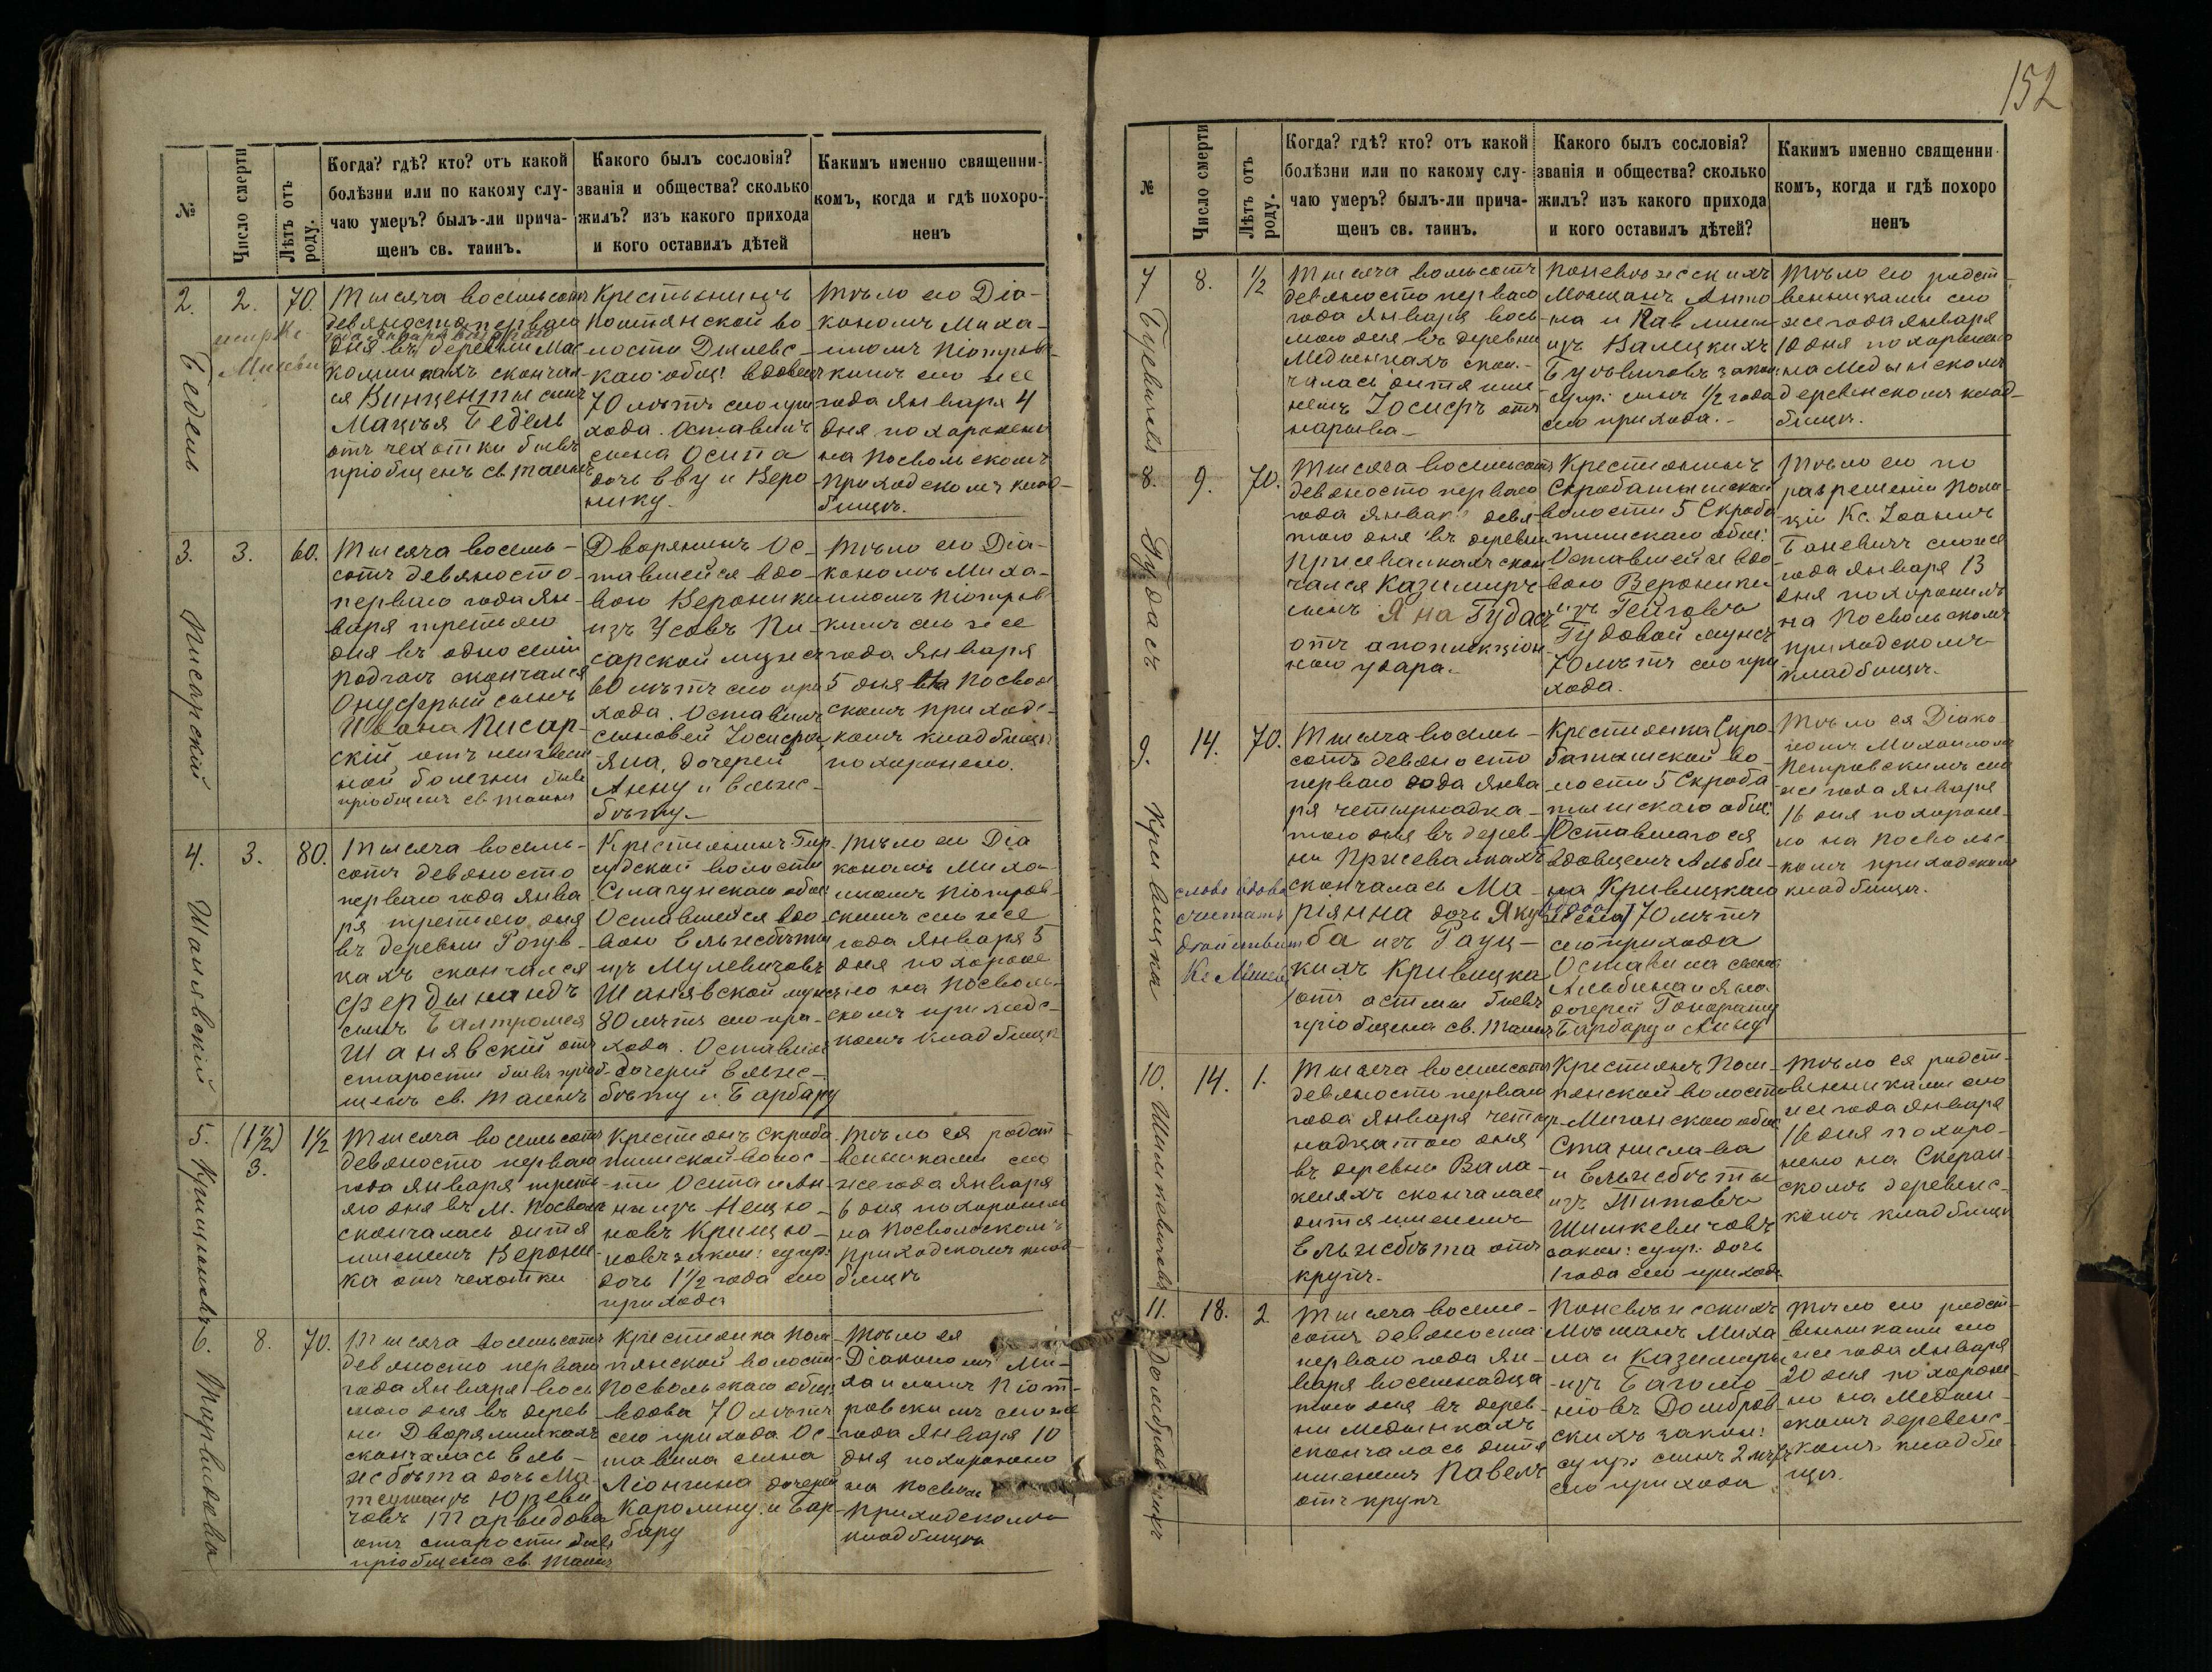 152
№
Число смерти
Лѣтъ отъ роду.
Когда? гдѣ? кто? отъ какой
болѣзни или по какому слу-
чаю умеръ? былъ-ли прича-
щенъ св. таинъ.
Какого былъ сословія?
званія и общества? сколько
жилъ? изъ какого прихода
и кого оставилъ дѣтей
Какимъ именно священни-
комъ, когда и гдѣ похоро-
ненъ
2.
Бедель
2.
70.
Тысяча восемьсотъ
девяноста перваго
года Января втораго
дня въ деревни Мас
коминахъ скончал-
ся Винцентый сынъ
Мацѣя Бедель
отъ чехотки бывъ
пріобщенъ св. таинъ
Крестьянинъ
Помпянской во-
лости
каго общ: вдовецъ
70 лѣтъ сего при
хода. Оставилъ
сына Осипа
дочь Еву и Веро
нику.
Тѣло его Діа-
кономъ Миха-
иломъ Піотров-
кимъ сего же
года Января 4
дня похоронено
на Посвольскомъ
приходскомъ клад-
бищѣ.
3.
Писарскій
3.
60.
Тысяча восемь-
сотъ девяносто-
перваго года Ян-
варя третьяго
дня въ односеліи
Подгаѣ скончался
Онуфрый сынъ
Ивана Писар-
скій отъ неизвест
ной болезни бывъ
пріобщенъ св. таинъ
Дворянинъ Ос-
тавшейся вдо-
вою Вероники
изъ Усовъ Пи-
сарской мужъ
60 лѣтъ сего при
хода. Оставилъ
сыновей Іосифа,
Яна, дочерей
Анну и Елис-
бѣту.
Тѣло его Діа-
кономъ Миха-
иломъ Піотров
кимъ сего же
года Января
5 дня на Посволь
скомъ приходс-
комъ кладбищѣ
похоронено.
4.
Шанявскій
3.
80.
Тысяча восемь-
сотъ девяносто
перваго года Янва
ря третьяго дня
въ деревни Рогув-
цахъ скончался
Фердынандъ
сынъ Балтромея
Шанявскій отъ
старости бывъ пріоб-
щенъ св. Таинъ
Крестьянинъ
волости
общ:
Оставшейся вдо
вою Ельжбѣты
изъ Мулевичовъ
Шанявской мужъ
80 лѣтъ сего при-
хода. Оставилъ
дочерей Елис-
бѣту и Барбару
Тѣло его Діа
кономъ Миха-
иломъ Піотров-
скимъ сего же
года Января 5
дня похороне
но на Посволь-
скомъ приходс-
комъ кладбищѣ
5.
(1½)
3.
1½
Тысяча восемьсотъ
девяносто перваго
года Января треть-
яго дня въ М. Посволѣ
скончалась дитя
именемъ Верони-
ка отъ чехотки
Крестьянъ Скроба
тишской волос-
ти Осипа и Ан-
ны изъ
новъ Крищю-
новъ закон: супр:
дочь 1½ года сего
прихода
Тѣло ея родст-
венниками сего
же года Января
6 дня похоронено
на Посвольскомъ
Приходскомъ клад-
бищѣ
6.
Тарвидова
8.
70.
Тысяча восемьсотъ
девяносто перваго
года Января вось
маго дня въ дерев
ни Дворялишкахъ
скончалась Ель-
жбѣта дочь Ма-
теуша изъ Юреви
човъ Тарвидова
отъ старости бывъ
пріобщена св. таинъ
Крестьянка Пом-
пянской волости
Посвольскаго общ:
вдова 70 лѣтъ
сего прихода Ос-
тавила сына
Ліонгина дочерей
Каролину и Бар-
бару
Тѣло ея
Діакономъ Ми-
хаиломъ Піот-
ровскимъ сего же
года Января 10
дня похоронено
на Посволь
Приходскомъ
кладбищѣ
№
Число смерти
Лѣтъ отъ роду.
Когда? гдѣ? кто? отъ какой
болѣзни или по какому слу-
чаю умеръ? былъ-ли прича-
щенъ св. таинъ.
Какого былъ сословія?
званія и общества? сколько
жилъ? изъ какого прихода
и кого оставилъ дѣтей?
Какимъ именно священни-
комъ, когда и гдѣ похоро
ненъ
7
8.
½
Тысяча восемьсотъ
девяносто перваго
года Января вось-
маго дня въ деревни
Медынкахъ скон-
чалась дитя име-
немъ Іосифъ отъ
нарыва-
Поневѣжскихъ
Мѣщанъ Анто
на и Павлины
изъ Валецкихъ
закон:
супр: сынъ ½ года
сего прихода.
Тѣло его родст
венниками сего
же года Января
10 дня похоронено
на Медынскомъ
деревенскомъ клад-
бищѣ.
8.
Гудасъ
9.
70.
Тысяча восемьсотъ
девяносто перваго
года Январ: девя-
таго дня въ деревни
Пржевалкахъ скон
чался Казимиръ
сынъ Яна Гудасъ
отъ апоплекціон-
наго удара.
Крестьянинъ
Скробатишской
волости 5 Скроба
тишскаго общ:
Оставшейся вдо
вою Вероники
изъ Гейговъ
Гудовой мужъ
70 лѣтъ сего при
хода.
Тѣло его по
разрешенію поли-
ціи Кс. Іоаннъ
Баневичъ сего же
года Января 13
дня похоронилъ
на Посвольскомъ
приходскомъ
кладбищѣ.
9.
Кривицка
14.
70.
Тысяча восемь-
сотъ девяносто
перваго года Янва
ря четырнадца-
таго дня въ дерев-
ни Пржевалкахъ
скончалась Ма-
ріянна дочь Яку
ба изъ Рауц-
кихъ Кривицка
отъ астмы бывъ
пріобщена св. таинъ
Крестьянка Скро-
батишской во-
лости 5 Скроба
тишскаго общ:
Оставшагося
вдовцемъ Альби-
на Кривицкаго
70 лѣтъ
сего прихода
Оставила сына
Альбина и Яна
дочерей Гонорату
Барбару и Анну
Тѣло ея Діако
номъ Михаиломъ
Петровскимъ сего
же года Января
16 дня похороне-
но на Посвольс-
комъ приходскомъ
кладбищѣ.
слово вдова
считать
10.
Шимкевичовъ
14.
1.
Тысяча восемьсотъ
девяносто перваго
года Января четыр-
надцатаго дня
въ деревни Вала-
келяхъ скончалась
дитя именемъ
Ельжбѣта отъ
крупъ.
Крестьянъ Пом-
пянской волости
общ:
Станислава
и Ельжбѣты
изъ Титовъ
Шимкевичовъ
закон: супр: дочь
1 года сего прихода
Тѣло ея родст-
венниками сего
же года Января
16 дня похоро-
нено на
скомъ деревенс-
комъ кладбищѣ
11.
18.
2.
Тысяча восемь-
сотъ девяноста
перваго года Ян-
варя восемнадца
таго дня въ дерев-
ни Медынкахъ
скончалась дитя
именемъ Павелъ
отъ крупъ
Поневѣжскихъ
Мѣщанъ Миха
ла и Казимиры
изъ
Домбров-
скихъ закон:
супр: сынъ 2 лѣтъ
сего прихода
Тѣло его родст-
венниками сего
же года Января
20 дня похороне-
но на Медын-
скомъ деревенс-
комъ кладби
щѣ.